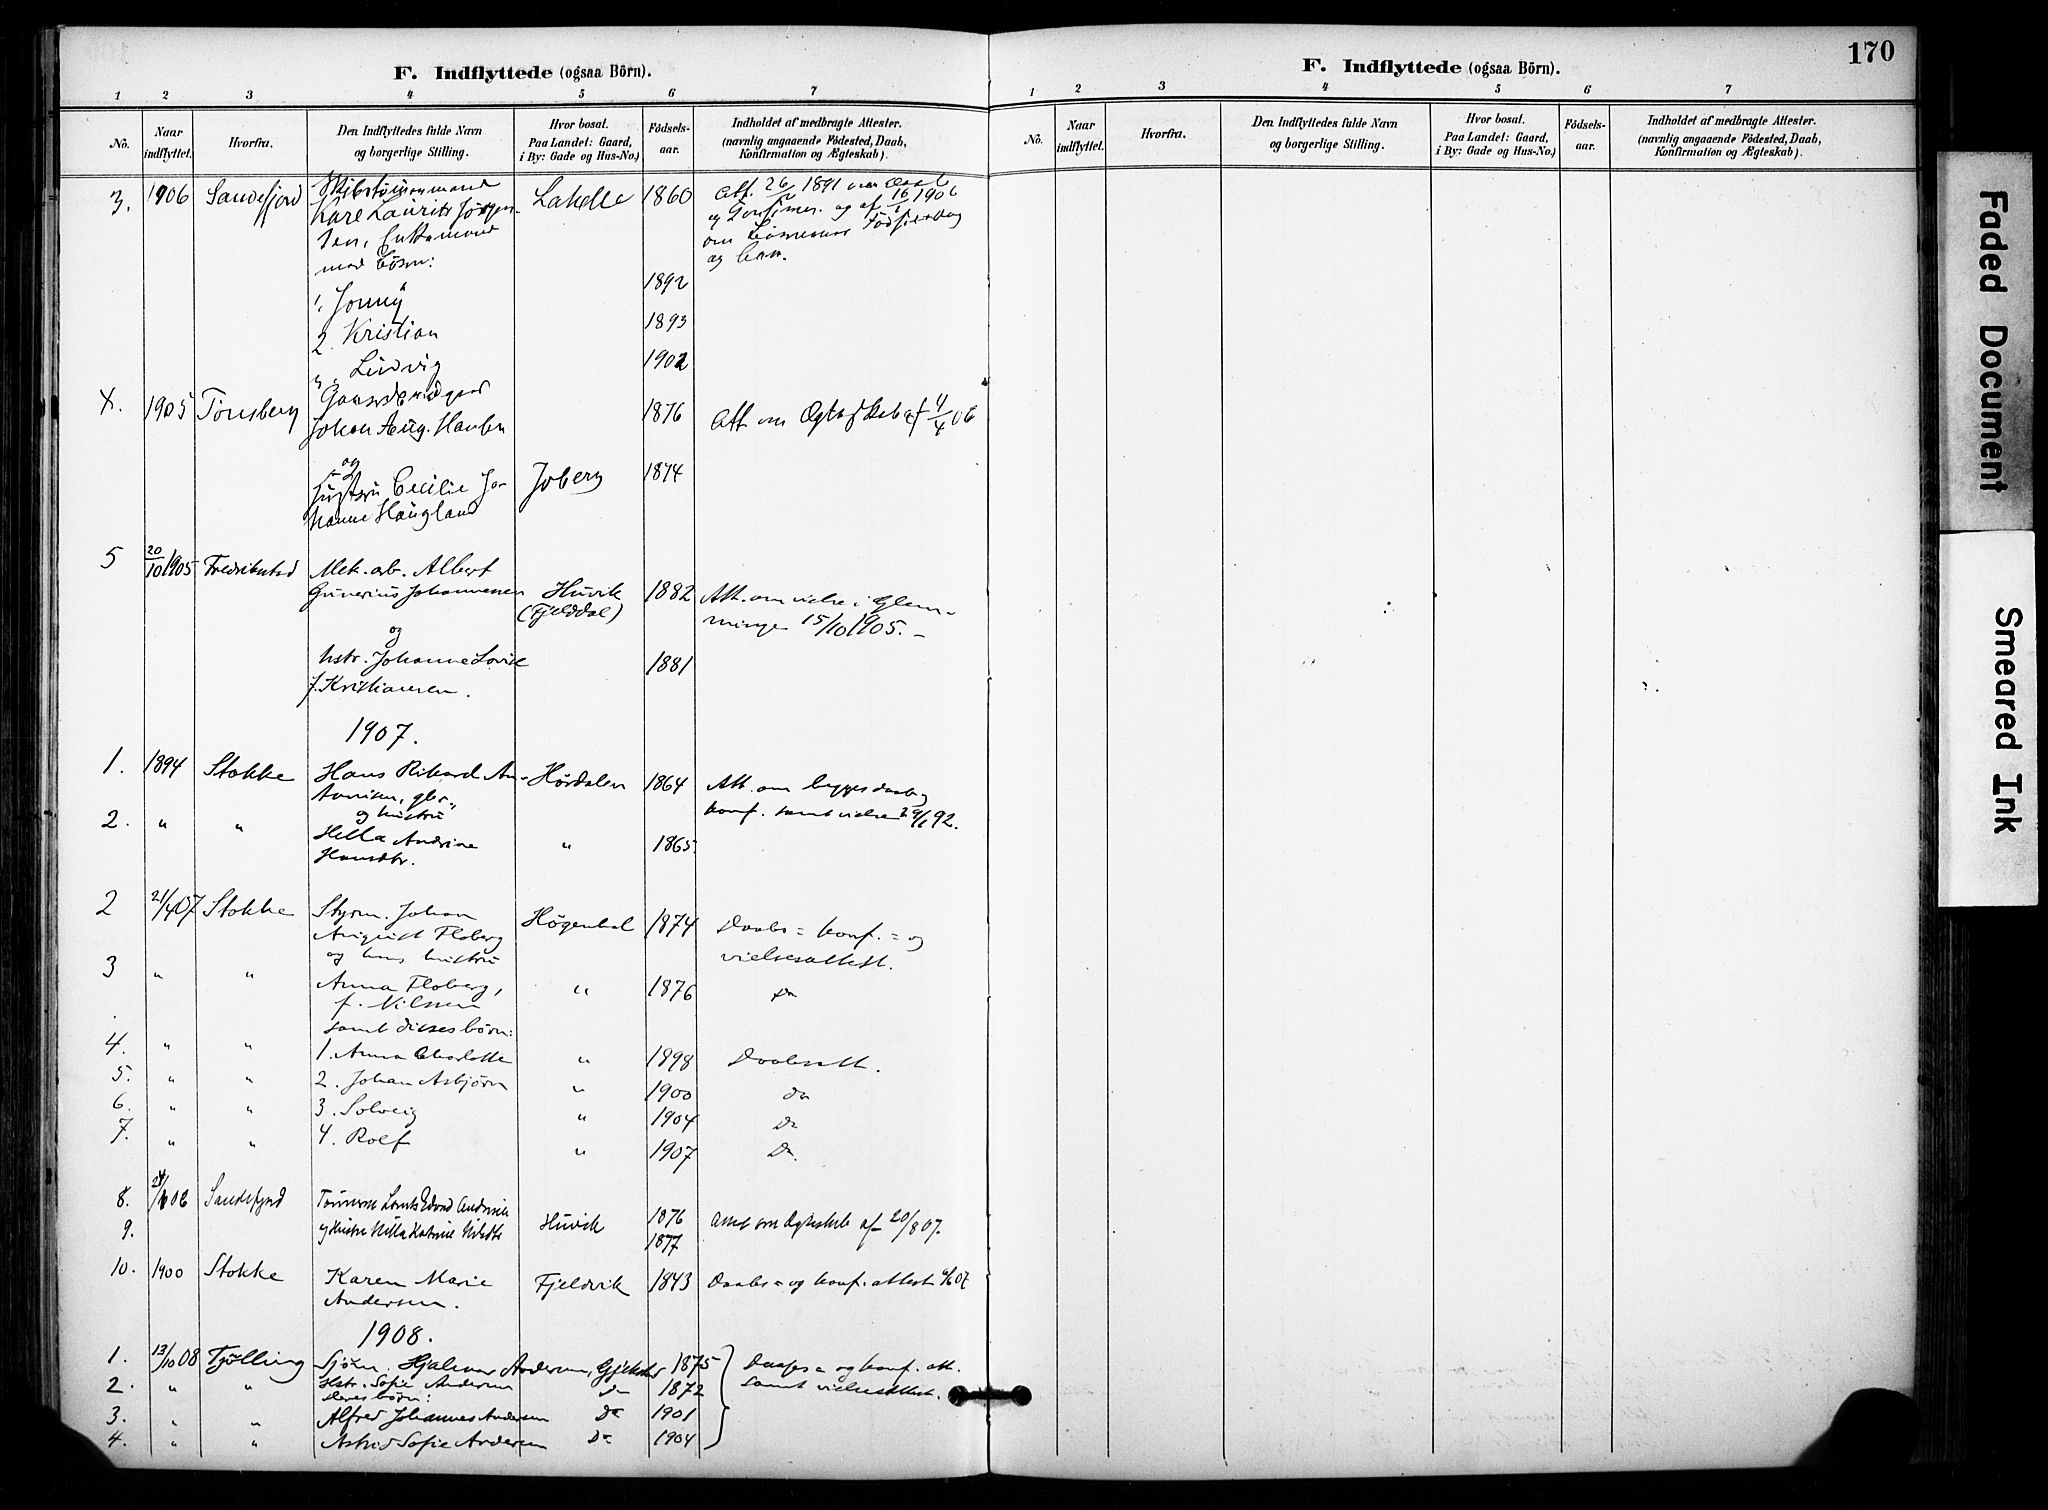 F. Indflyttede (ogsaa Börn).
1 2 3 4 5 6 7
No. Naar indflyttet. Hvorfra. Den Indflyttedes fulde Navn og borgerlige Stilling. Hvor bosat. Paa Landet: Gaard, i By: Gade og Hus-No.) Födsels-aar. Indholdet af medbragte Attester. (navnlig angaaende Födested, Daab, Konfirmation og Ægteskab).
3. 1906 Sandefjord Lakelle 1860 Att. 26 1891 om Daab
og og af 16/1 1906
om Fødselsdag
med Börn: og
1, Jonny 1892
2. Kristian 1893
Ludvig 1902
X. 1905 Tönsberg 1876 Att om Ægteskab af 4/4 06
Johan Aug. Hansen
og
Hustru Cecilie Jo- Joberg 1874
hanne Haugland
5 20/10 1905 Fredrikstad Mek. arb. Albert
Gunerius Johannessen Huvik 1882 Att. om vielse i Glem-
(Fjelddal) minge 15/10 1905. -
og
hstr. Johanne Lovise 1881
f. Kristiansen.
1907.
1. 1894 Stokke Hans Rikard An- Hördalen 1864 Att. om begges daab og
tonisen, gbr., konf. samt vielse 29/1 92.
og hustru
2. " " Hella Andrine " 1865.
Hansdtr.
2 21/4 07 Stokke Styrm. Johan Högenhal 1874 Daabs = konf. = og
August Floberg vielsesattest.
og hans hustru
3 " " Anna Floberg, " 1876 Do
f. Nilssen
samt disses børn:
4. " " 1. Anna Charlotte " 1898 Daabsatt.
5. " " 2. Johan Asbjörn " 1900 Do
6. " " 3. Solveig " 1904 Do
7. " " 4. Rolf " 1907 Do.
8. Sandefjord 1876
9. Huvik Attest om Ægteskab af 20/8 07.
1877
10. 1900 Stokke Karen Marie Fjeldvik 1843 Daabs = og konf. attest 07
Andersen.
1908.
1. 13/10 08 Tjölling Sjöm. Hjalmar Andersen, 1875 Daabs = og konf. att.
2. " " Hstr. Sofie Andersen Do 1872 samt vielsesattest.
deres børn:
3. " " Alfred Johannes Andersen Do 1901
4. " " Astrid Sofie Andersen Do 1904
170
F. Indflyttede (ogsaa Börn).
1 2 3 4 5 6 7
No. Naar indflyttet. Hvorfra. Den Indflyttedes fulde Navn og borgerlige Stilling. Hvor bosat. Paa Landet: Gaard, i By: Gade og Hus-No.) Födsels-aar. Indholdet af medbragte Attester. (navnlig angaaende Födested, Daab, Konfirmation og Ægteskab).
Faded Document
Smeared Ink